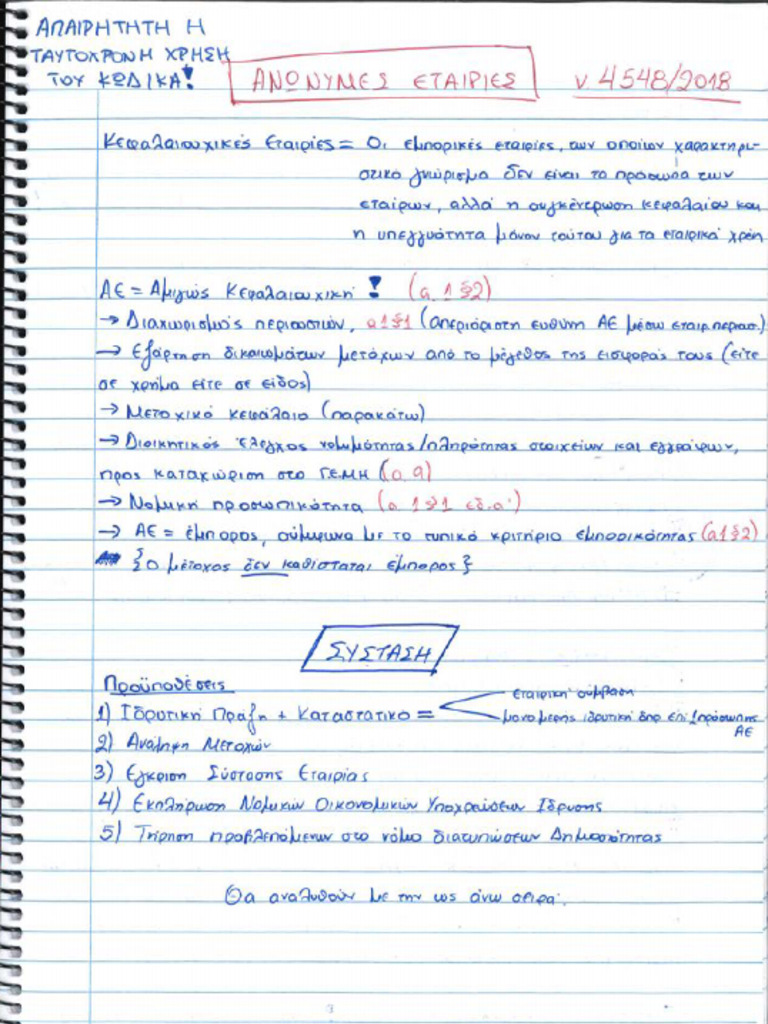 ΑΠΑΙΡΗΤΗΤΗ Η
ΤΑΥΤΟΧΡΟΝΗ ΧΡΗΣΗ
ΤΟΥ ΚΩΔΙΚΑ!
ΑΝΩΝΥΜΕΣ ΕΤΑΙΡΙΕΣ
ν. 4548/2018
Κεφαλαιουχικές Εταιρίες = Οι εμπορικές εταιρίες, των οποίων χαρακτηρι-
στικό γνώρισμα δεν είναι τα πρόσωπα των
εταίρων, αλλά η συγκέντρωση κεφαλαίου και
η υπεγγυότητα μόνον τούτου για τα εταιρικά χρέη
ΑΕ = Αμιγώς Κεφαλαιουχική! (α. 1 §2)
→ Διαχωρισμός περιουσιών, α1§1 (απεριόριστη ευθύνη ΑΕ μέσω εταιρ. περιουσ.)
→ Εξάρτηση δικαιωμάτων μετόχων από το μέγεθος της εισφοράς τους (είτε
σε χρήμα είτε σε είδος)
→ Μετοχικό κεφάλαιο (παρακάτω)
→ Διοικητικός έλεγχος νομιμότητας/πληρότητας στοιχείων και εγγράφων,
προς καταχώριση στο Γ.Ε.ΜΗ (α. 9)
→ Νομική προσωπικότητα (α. 1§1 εδ.α')
→ ΑΕ = έμπορος, σύμφωνα με το τυπικό κριτήριο εμπορικότητας (α1§2)
{Ο μέτοχος δεν καθίσταται έμπορος}
ΣΥΣΤΑΣΗ
Προϋποθέσεις
εταιρική σύμβαση
1) Ιδρυτική Πράξη + Καταστατικό =
μονομερής ιδρυτική δηλ επί 1πρόσωπης
ΑΕ
2) Ανάληψη Μετοχών
3) Έγκριση Σύστασης Εταιρίας
4) Εκπλήρωση Νομικών Οικονομικών Υποχρεώσεων Ίδρυσης
5) Τήρηση προβλεπόμενων στο νόμο διατυπώσεων Δημοσιότητας
Θα αναλυθούν με την ως άνω σειρά.
3